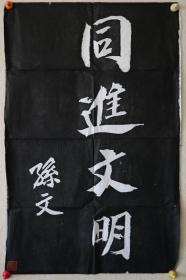 同進文明
孫文